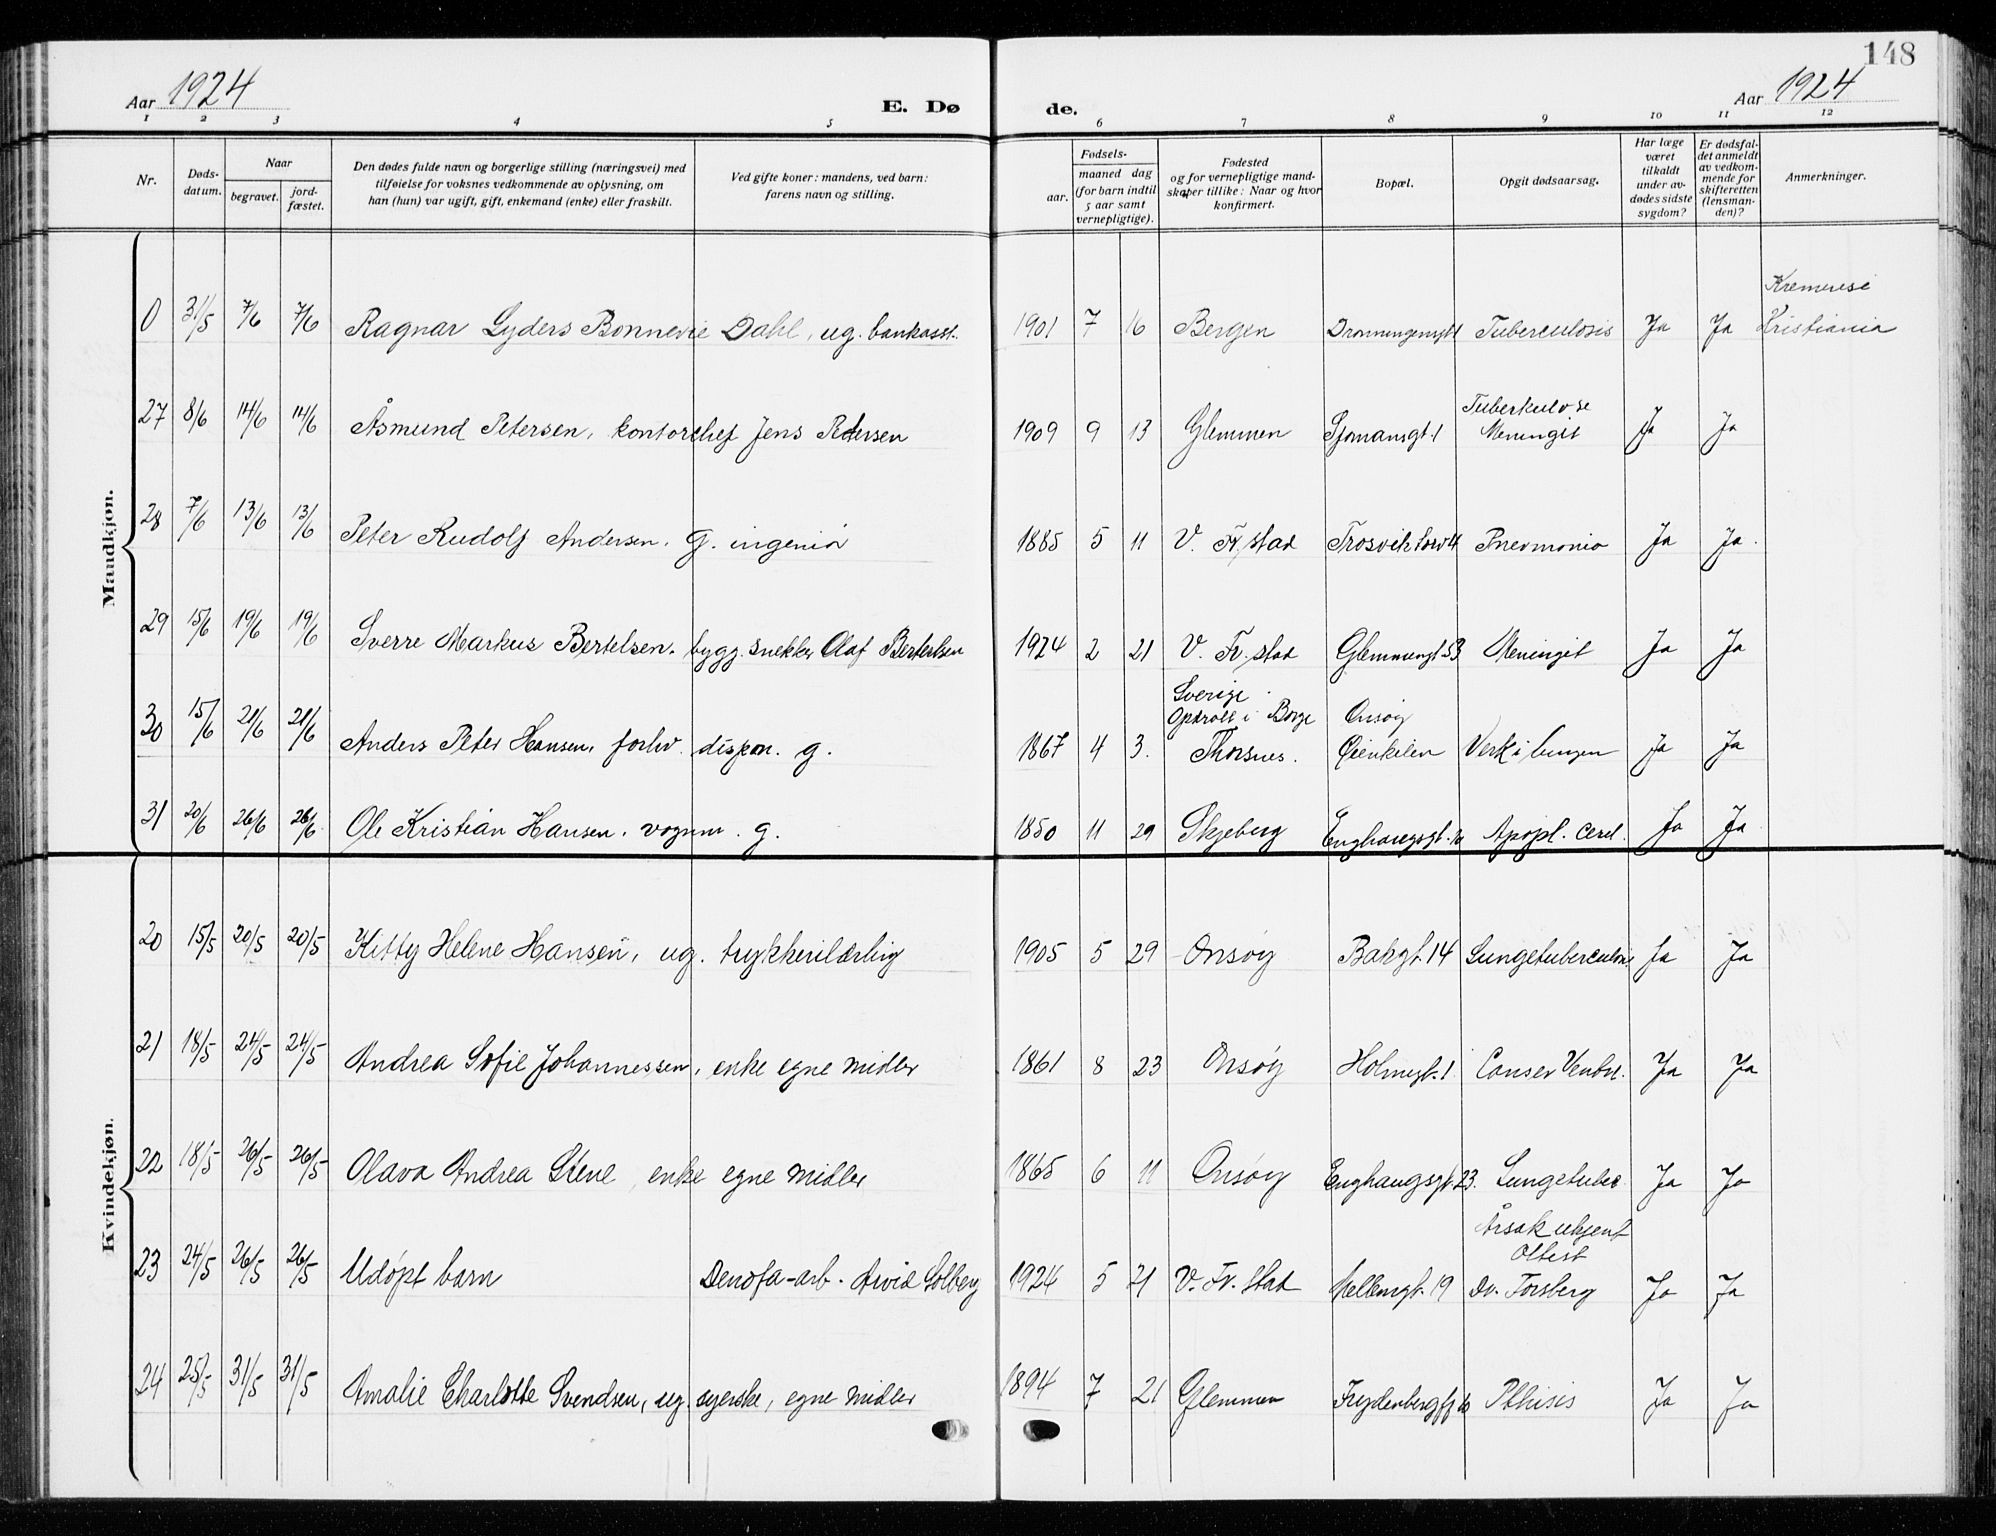 148
Aar 1924
E. Dø de.
Aar 1924
1 2 3 4 5 6 7 8 9 10 11 12
Nr.
Døds-
datum.
Naar
begravet.
jord-
fæstet.
Den dødes fulde navn og borgerlige stilling (næringsvei) med
tilføielse for voksnes vedkommende av oplysning, om
han (hun) var ugift, gift, enkemand (enke) eller fraskilt.
Ved gifte koner: mandens, ved barn:
farens navn og stilling.
Fødsels-
aar.
maaned dag
(for barn indtil
5 aar samt
vernepligtige).
Fødested
og for vernepligtige mand-
skaper tillike: Naar og hvor
konfirmert.
Bopæl.
Opgit dødsaarsag.
Har læge
været
tilkaldt
under av-
dødes sidste
sygdom?
Er dødsfal-
det anmeldt
av vedkom-
mende for
skifteretten
(lensman-
den)?
Anmerkninger.
Mandkjøn.
0 31/5 7/6 7/6 Ragnar Lyders Bonnevie Dahl, ug. bankasst. 1901 7 16 Bergen Dronningensgt 1 Tuberculosis Ja Ja Kremeres i
Kristiania
27 8/6 14/6 14/6 Åsmund Petersen, kontorchef Jens Petersen 1909 9 13 Glemmen Sjømansgt. 1 Tuberkuløse
Meningit Ja Ja
28 7/6 13/6 13/6 Peter Rudolf Andersen. g. ingeniør 1885 5 11 V. Fr.stad Trosviktorv 4 Pnevmonia Ja Ja.
29 15/6 19/6 19/6 Sverre Markus Bertelsen. bygg.snekker Olaf Bertelsen 1924 2 21 V. Fr.stad Glemmengt 53 Meningit Ja Ja
30 15/6 21/6 21/6 Anders Peter Hansen, forhv. dispon. g. 1867 4 3. Sverige
Opdratt i Borge
Thorsnes. Onsøy
Øienkilen Verk i lungen Ja Ja
31 20/6 26/6 26/6 Ole Kristian Hansen. vognm. g. 1850 11 29 Skjeberg Enghaugsgt. Apopl. cerel. Ja Ja
Kvindekjøn.
20 15/5 20/5 20/5 Kitty Helene Hansen, ug. trykkerilærling 1905 5 29 Onsøy Bakgt. 14 Lungetuberculose Ja Ja
21 18/5 24/5 24/5 Andrea Sofie Johannessen, enke egne midler 1861 8 23 Onsøy Holmegt. 1 Canser Ventri. Ja Ja
22 18/5 26/5 26/5 Olava Andrea Stene, enke egne midler 1865 6 11 Onsøy Enghaugsgt. 23. Lungetuberc Ja Ja
23 24/5 26/5 26/5 Udøpt barn Denofa-arb. Arvid Solberg 1924 5 21 V. Fr.stad Mellemgt. 19 Årsak ukjent
attest
Dr. Forsberg Ja Ja
24 25/5 31/5 31/5 Amalie Charlotte Svendsen, ug. syerske, egne midler 1894 7 21 Glemmen Frydenberggt Pthisis Ja Ja